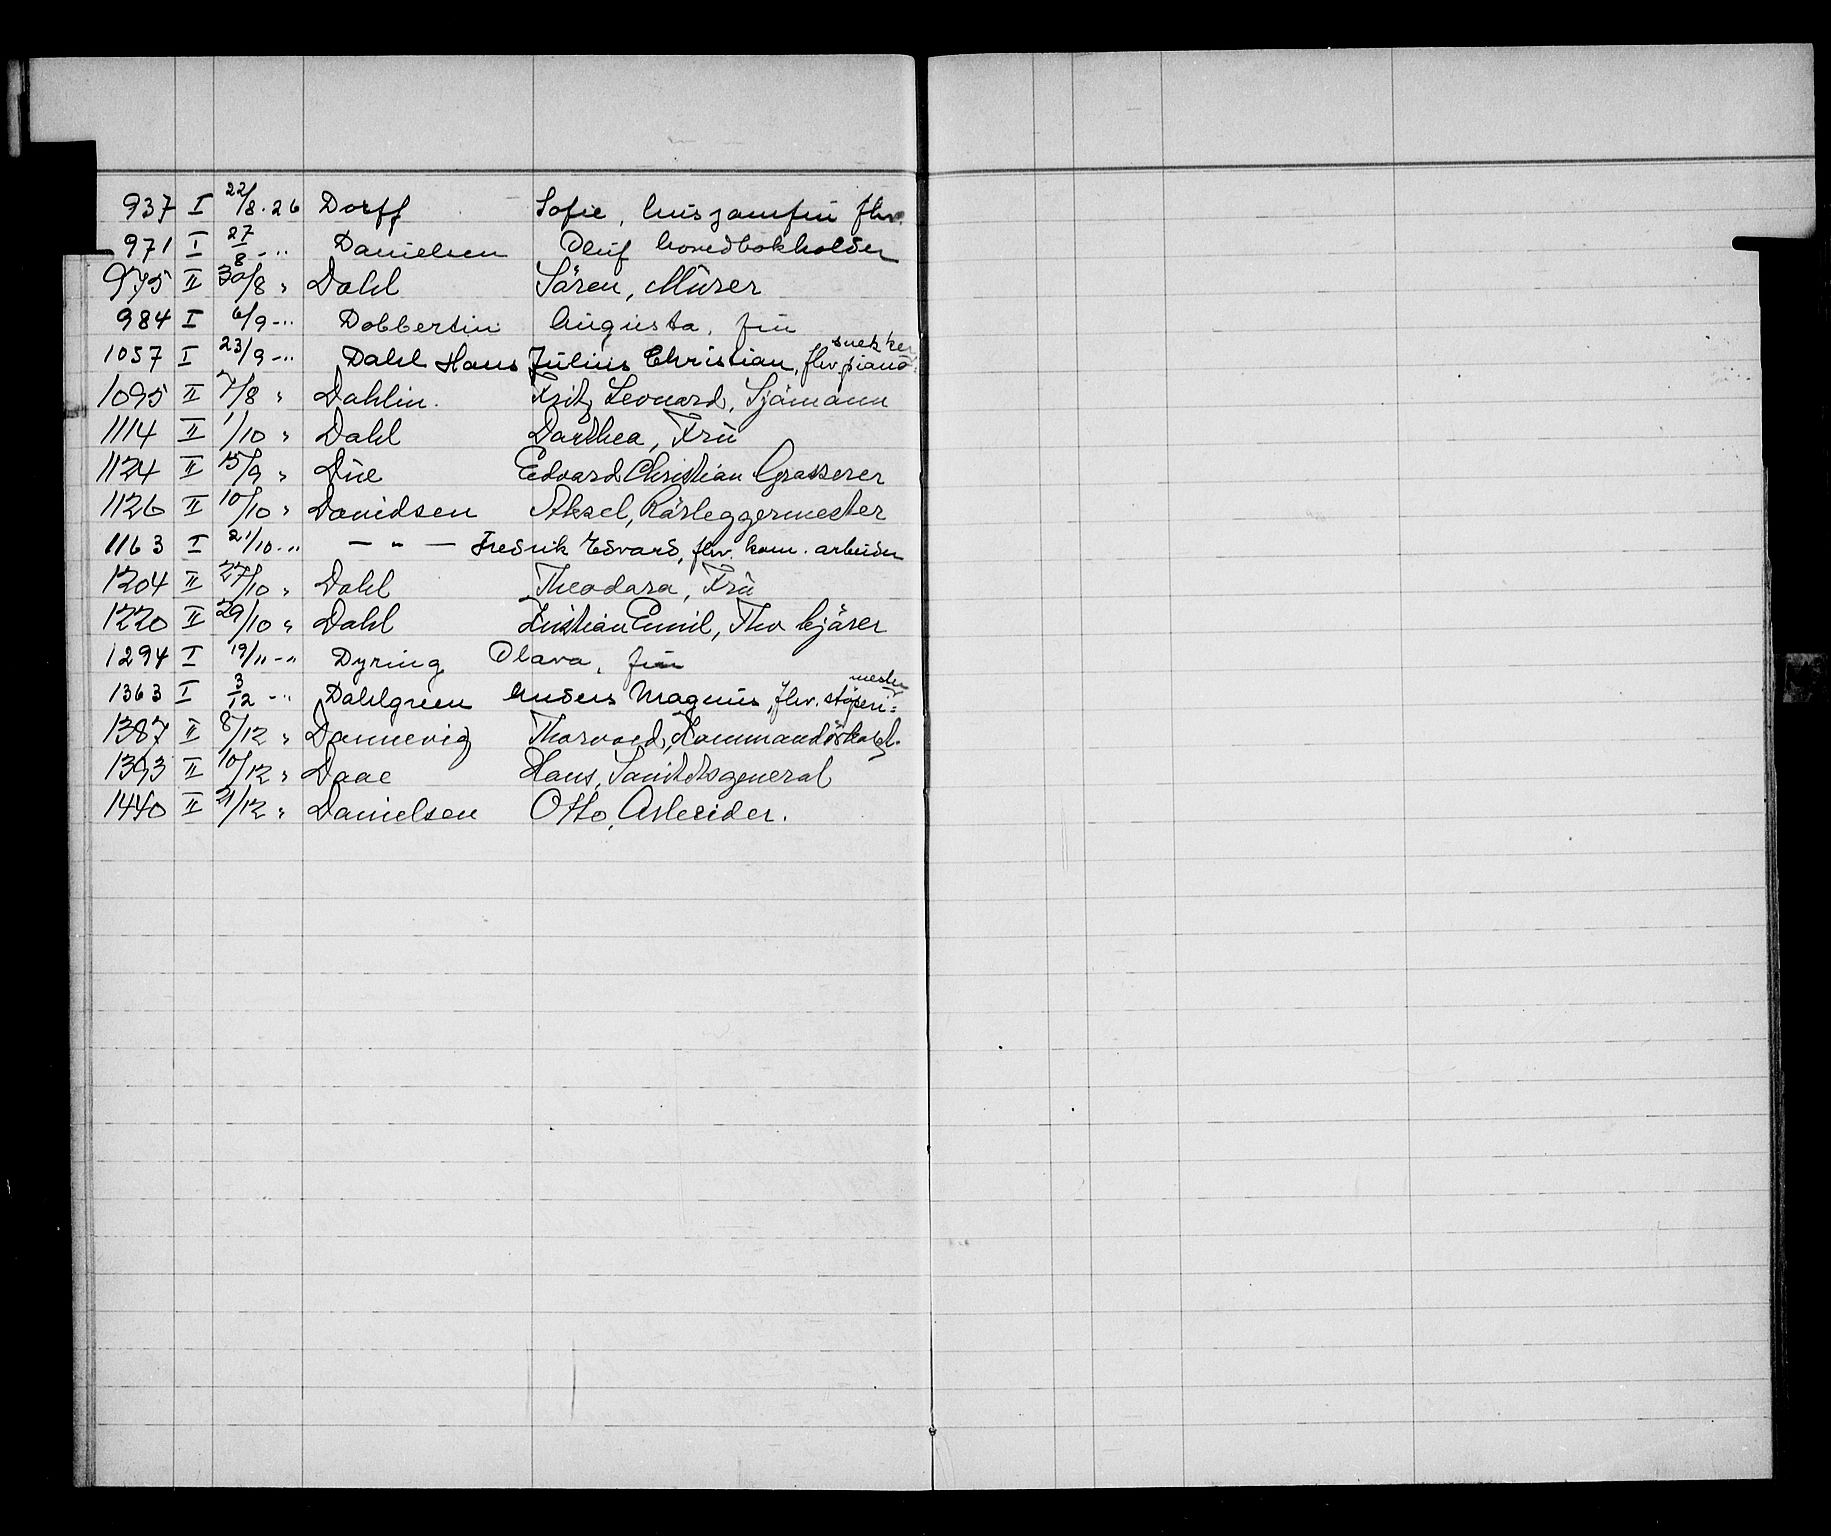 937 I 22/8.26 Dorff Sofie, husjomfru fhv.
971 I 27/8 -" Danielsen Oluf hovedbokholder
975 II 30/8 " Dahl Sören, Murer
984 I 6/9 -" Dobbertin Augusta, fru
1057 I 23/9 -" Dahl Hans Julius Christian, fhv. piano- snekker
1095 II 7/8 " Dahlin. Fritz Leonard, Sjömann
1114 II 1/10 " Dahl Dorthea, Frü
1124 II 15/9 " Düe Edvard Christian Grosserer
1126 II 10/10 " Davidsen Aksel, Rörleggermester
1163 I 21/10 -" — " — Fredrik Edvard, fhv. kom. arbeider
1204 II 27/10 " Dahl Theodora, Frü
1220 II 29/10 " Dahl Kristian Emil, Fhv kjörer
1294 I 19/11 -" Dyring Olava, fru
1363 I 3/12 -" Dahlgreen Anders Magnus, fhv. støperi= mester
1387 II 8/12 " Dannevig Thorvald, Kommandörkapt.
1393 II 10/12 " Daae Hans, Sanitetsgeneral
1440 II 21/12 " Danielsen Otto, Arbeider.